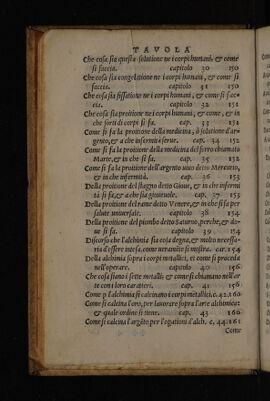 TAVOLA
Che cosa sia questa solutione ne i corpi humani, & come
si faccia. capitolo 30 150
Che cosa sia congelatione ne i corpi humani, & come si
faccia. capitolo 31 150
Che cosa sia fissatione ne i corpi humani, & come si fac-
cia. capitolo 32 151
Che cosa sia proitione ne i corpi humani, & come, & in
che sorti di corpi si fa. cap. 33 151
Come si fa la proitione della medicina, ò solutione d'ar-
gento, & a che infermità serue. cap. 34 152
Come si fa la proitione della medicina del ferro chiamato
Marte, & in che si fa. cap. 35 152
Come si fa la proitione dell'argento uiuo detto Mercurio,
& in che infermità. cap. 36 153
Della proitione del stagno detto Gioue, & in che infermi
tà si fa, & a che sia gioueuole. cap. 37 153
Della proitione del rame detto Venere, & in che si fa per
salute uniuersale. capitolo 38 154
Della proitione del piombo detto Saturno, perche, & do-
ue si fa. capitolo 39 154
Discorso che l'alchimia sia cosa degna, & molto necessa-
ria d'essere intesa, come narratiuo si mostra. car. 154
Della alchimia sopra i corpi metallici, et come si proceda
nell'operare. capitolo 40 156
Che cosa siano i sette metalli & come si chiamano nell'ar
te con i loro caratteri. cap. 41 156
Come p l'alchimia si calcinano i corpi metallici. c. 42.160
Come si calcina l'oro, per lauorare sopra l'arte alchimica:
& quale ordine si tiene. cap. 43 160
Come si calcina l'argēto per l'ogationi d'alch. c. 44.161
Come